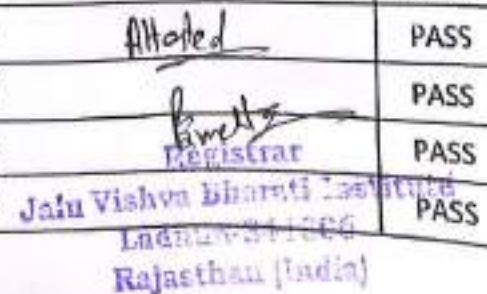 Attested
PASS
PASS
Registrar
PASS
Jain Vishva Bharati Institute
PASS
Ladnun-341306
Rajasthan (India)